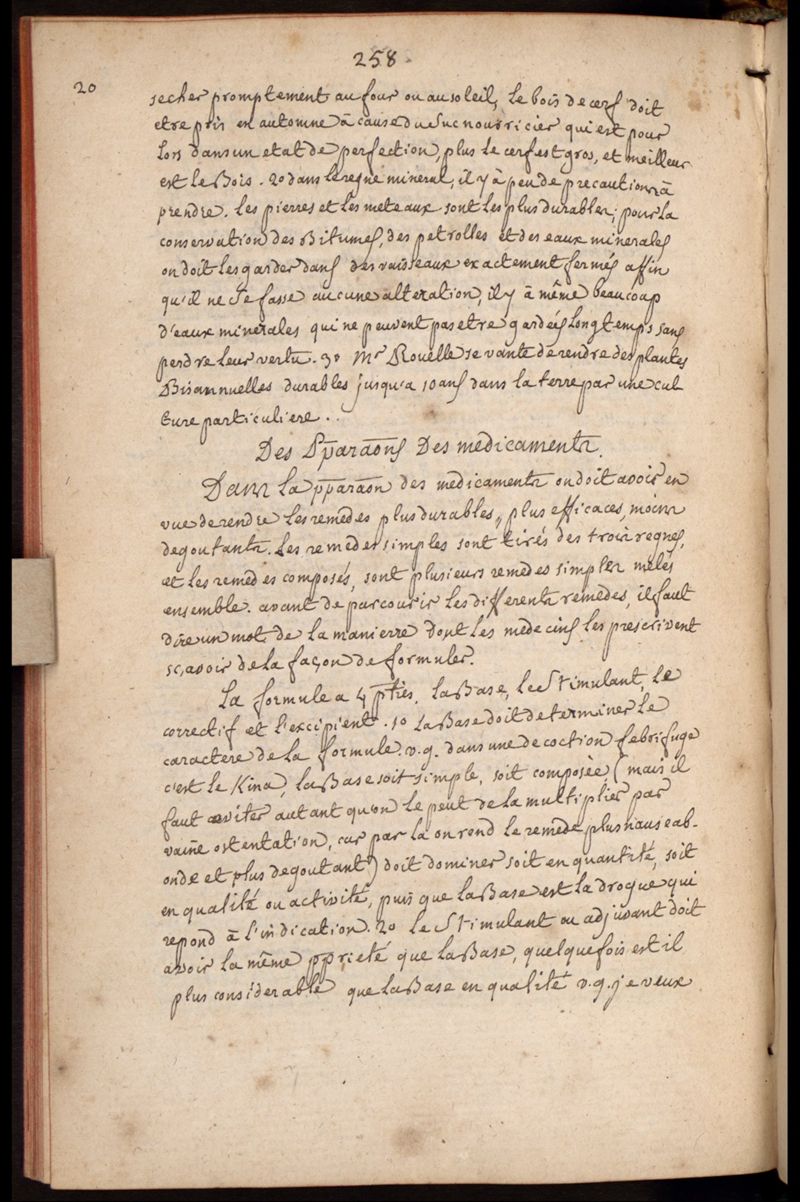 258.
20
secher promptement au four ou au soleil, le bois de cerf doit
etre pris en automne à cause du suc nourricier qui est pour
lors dans un etat de perfection, plus le cerf est gros, et meilleur
est le Bois. 20 dans le regne mineral, il y à peu de precautions à
prendre. les pierres et les meteaux sont les plus durables; pour la
conservation des Bitumes, des petrolles et des eaux minerales
on doit les garder dans des vaisseaux exactement fermés affin
qu'il ne se fasse aucune alteration, il y à même beaucoup
d'eaux minerales qui ne peuvent pas etre gardées longtemps sans
perdre leur vertu. 3º Mr Rouelle se vante de rendre des plantes
Bisannuelles durables jusqu'a 10 ans dans la terre par une cul
ture particuliere..
Des Pp̄araōns Des medicaments.
Dans la pp̄araōn des medicaments on doit avoir en
vue de rendre les remedes plus durables, plus efficaces, moins
degoutants. les remedes simples sont tirés des trois regnes,
et les remedes composés, sont plusieurs remedes simples melés
ensemble. avant de parcourir les differents remedes, il faut
dire un mot de la manierre dont les medecins les prescrivent
sçavoir de la façon de formuler.
La formule a 4 p̄ties, la Base, le Stimulant, le
correctif et l'excipient. 10 la Base doit determiner le
caractere de la formule. v.g. dans une decoction febrifuge
c'est le Kina, la Base soit simple, soit composée (mais il
faut eviter autant qu'on le peut de la multiplier par
vaine ostentation, car par là on rend le remede plus nauseab-
onde et plus degoutant) doit dominer soit en quantité, soit
en qualité ou activité, puis que la Base est la drogue qui
repond à l'indication. 20 le Stimulant ou adjuvant doit
avoir la même pprieté que la Base, quelquefois est il
plus considerable que la Base en qualité v.g. je veux